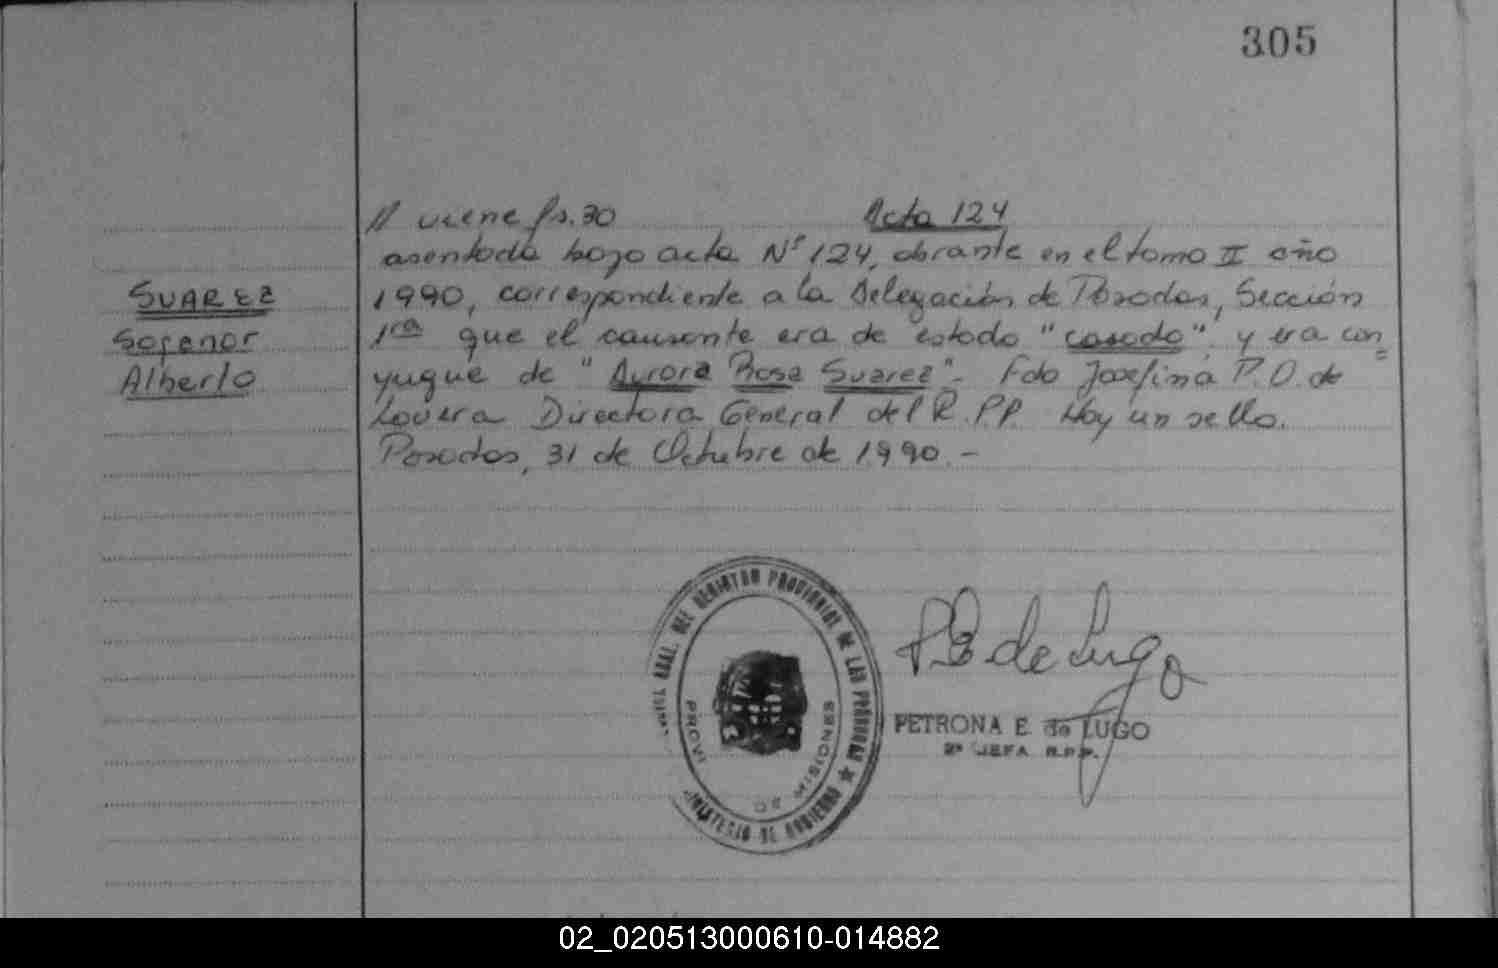 305
// viene fs. 30 Acta 124
asentada bajo acta Nº 124, obrante en el tomo II año
SUAREZ
1990, correspondiente a la Delegación de Posadas, Sección
Sofanor
1ra que el causante era de estado "casado" y era con=
Alberto
yugue de "Aurora Rosa Suarez"- Fdo Josefina P.O. de
Lovera Directora General del R.P.P. Hay un sello.
Posadas, 31 de Octubre de 1990.-
GRAL. DEL REGISTRO PROVINCIAL DE LAS PERSONAS ★ MINISTERIO DE GOBIERNO
PROVI DE MISIONES
P.E de Lugo
PETRONA E. de LUGO
2ª JEFA R.P.P.
02_020513000610-014882